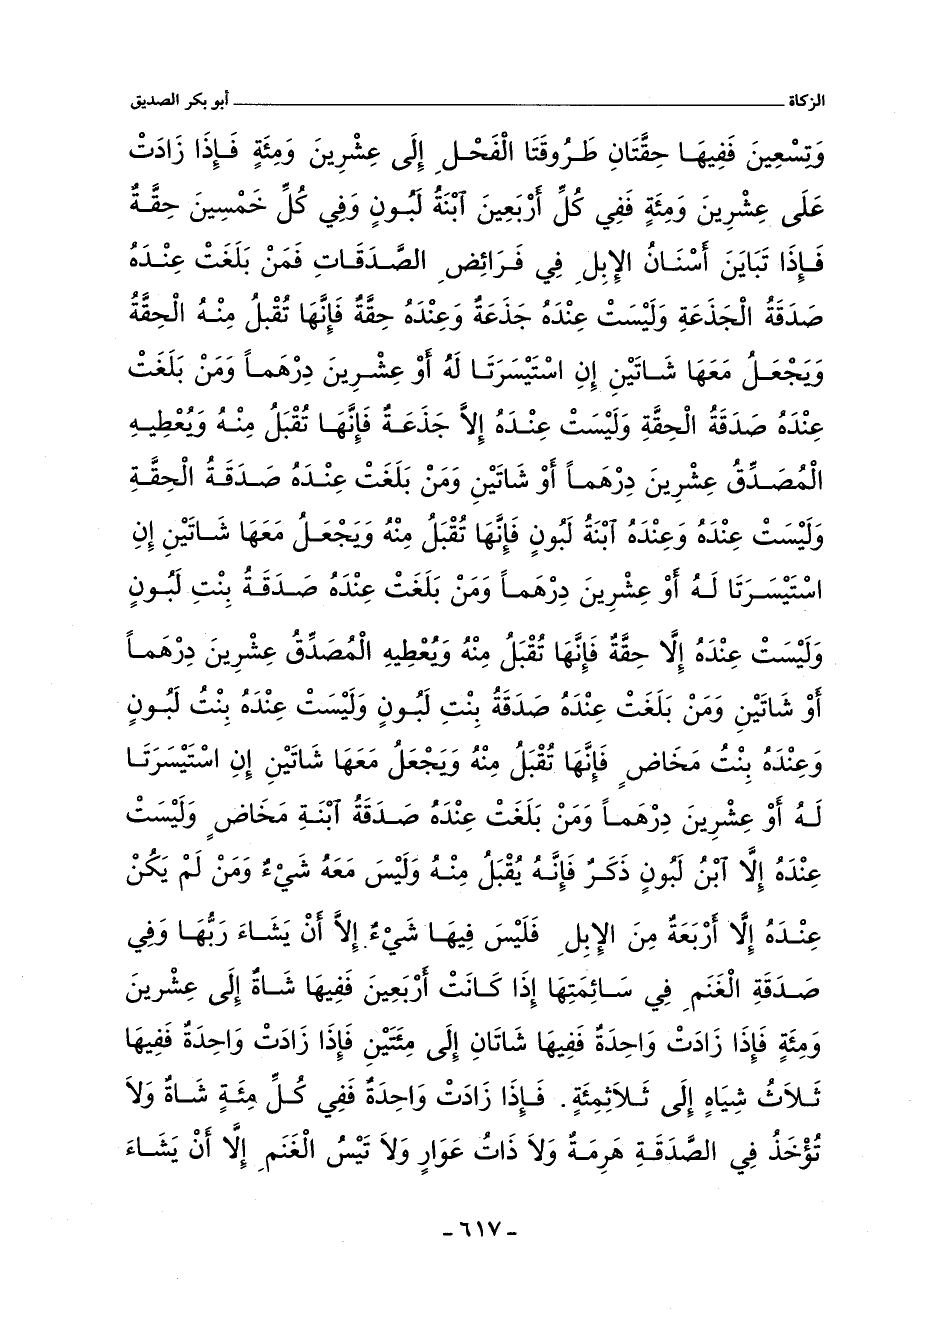 الزكاة ـــــــــــــــــــــــــــــــــــــــــ أبو بكر الصديق
وَتِسْعِينَ فَفِيهَا حِقَّتَانِ طَرُوقَتَا الْفَحْلِ إِلَى عِشْرِينَ وَمِئَةٍ فَإِذَا زَادَتْ
عَلَى عِشْرِينَ وَمِئَةٍ فَفِي كُلِّ أَرْبَعِينَ آبْنَةُ لَبُونٍ وَفِي كُلِّ خَمْسِينَ حِقَّةٌ
فَإِذَا تَبَايَنَ أَسْنَانُ الإِبِلِ فِي فَرَائِضِ الصَّدَقَاتِ فَمَنْ بَلَغَتْ عِنْدَهُ
صَدَقَةُ الْجَذَعَةِ وَلَيْسَتْ عِنْدَهُ جَذَعَةٌ وَعِنْدَهُ حِقَّةٌ فَإِنَّهَا تُقْبَلُ مِنْهُ الْحِقَّةُ
وَيَجْعَلُ مَعَهَا شَاتَيْنِ إِنِ اسْتَيْسَرَتَا لَهُ أَوْ عِشْرِينَ دِرْهَماً وَمَنْ بَلَغَتْ
عِنْدَهُ صَدَقَةُ الْحِقَّةِ وَلَيْسَتْ عِنْدَهُ إِلاَّ جَذَعَةٌ فَإِنَّهَا تُقْبَلُ مِنْهُ وَيُعْطِيهِ
الْمُصَدِّقُ عِشْرِينَ دِرْهَماً أَوْ شَاتَيْنِ وَمَنْ بَلَغَتْ عِنْدَهُ صَدَقَةُ الْحِقَّةِ
وَلَيْسَتْ عِنْدَهُ وَعِنْدَهُ آبْنَةُ لَبُونٍ فَإِنَّهَا تُقْبَلُ مِنْهُ وَيَجْعَلُ مَعَهَا شَاتَيْنِ إِنِ
اسْتَيْسَرَتَا لَهُ أَوْ عِشْرِينَ دِرْهَماً وَمَنْ بَلَغَتْ عِنْدَهُ صَدَقَةُ بِنْتِ لَبُونٍ
وَلَيْسَتْ عِنْدَهُ إِلَّا حِقَّةٌ فَإِنَّهَا تُقْبَلُ مِنْهُ وَيُعْطِيهِ الْمُصَدِّقُ عِشْرِينَ دِرْهَماً
أَوْ شَاتَيْنِ وَمَنْ بَلَغَتْ عِنْدَهُ صَدَقَةُ بِنْتِ لَبُونٍ وَلَيْسَتْ عِنْدَهُ بِنْتُ لَبُونٍ
وَعِنْدَهُ بِنْتُ مَخَاضٍ فَإِنَّهَا تُقْبَلُ مِنْهُ وَيَجْعَلُ مَعَهَا شَاتَيْنِ إِنِ اسْتَيْسَرَتَا
لَهُ أَوْ عِشْرِينَ دِرْهَماً وَمَنْ بَلَغَتْ عِنْدَهُ صَدَقَةُ آبْنَةِ مَخَاضٍ وَلَيْسَتْ
عِنْدَهُ إِلَّا آبْنُ لَبُونٍ ذَكَرٌ فَإِنَّهُ يُقْبَلُ مِنْهُ وَلَيْسَ مَعَهُ شَيْءٌ وَمَنْ لَمْ يَكُنْ
عِنْدَهُ إِلَّا أَرْبَعَةٌ مِنَ الإِبِلِ فَلَيْسَ فِيهَا شَيْءٌ إِلاَّ أَنْ يَشَاءَ رَبُّهَا وَفِي
صَدَقَةِ الْغَنَمِ فِي سَائِمَتِهَا إِذَا كَانَتْ أَرْبَعِينَ فَفِيهَا شَاةٌ إِلَى عِشْرِينَ
وَمِئَةٍ فَإِذَا زَادَتْ وَاحِدَةٌ فَفِيهَا شَاتَانِ إِلَى مِئَتَيْنِ فَإِذَا زَادَتْ وَاحِدَةٌ فَفِيهَا
ثَلاَثُ شِيَاهٍ إِلَى ثَلاَثِمِئَةٍ. فَإِذَا زَادَتْ وَاحِدَةٌ فَفِي كُلِّ مِئَةٍ شَاةٌ وَلاَ
تُؤْخَذُ فِي الصَّدَقَةِ هَرِمَةٌ وَلاَ ذَاتُ عَوَارٍ وَلاَ تَيْسُ الْغَنَمِ إِلَّا أَنْ يَشَاءَ
- ٦١٧ -